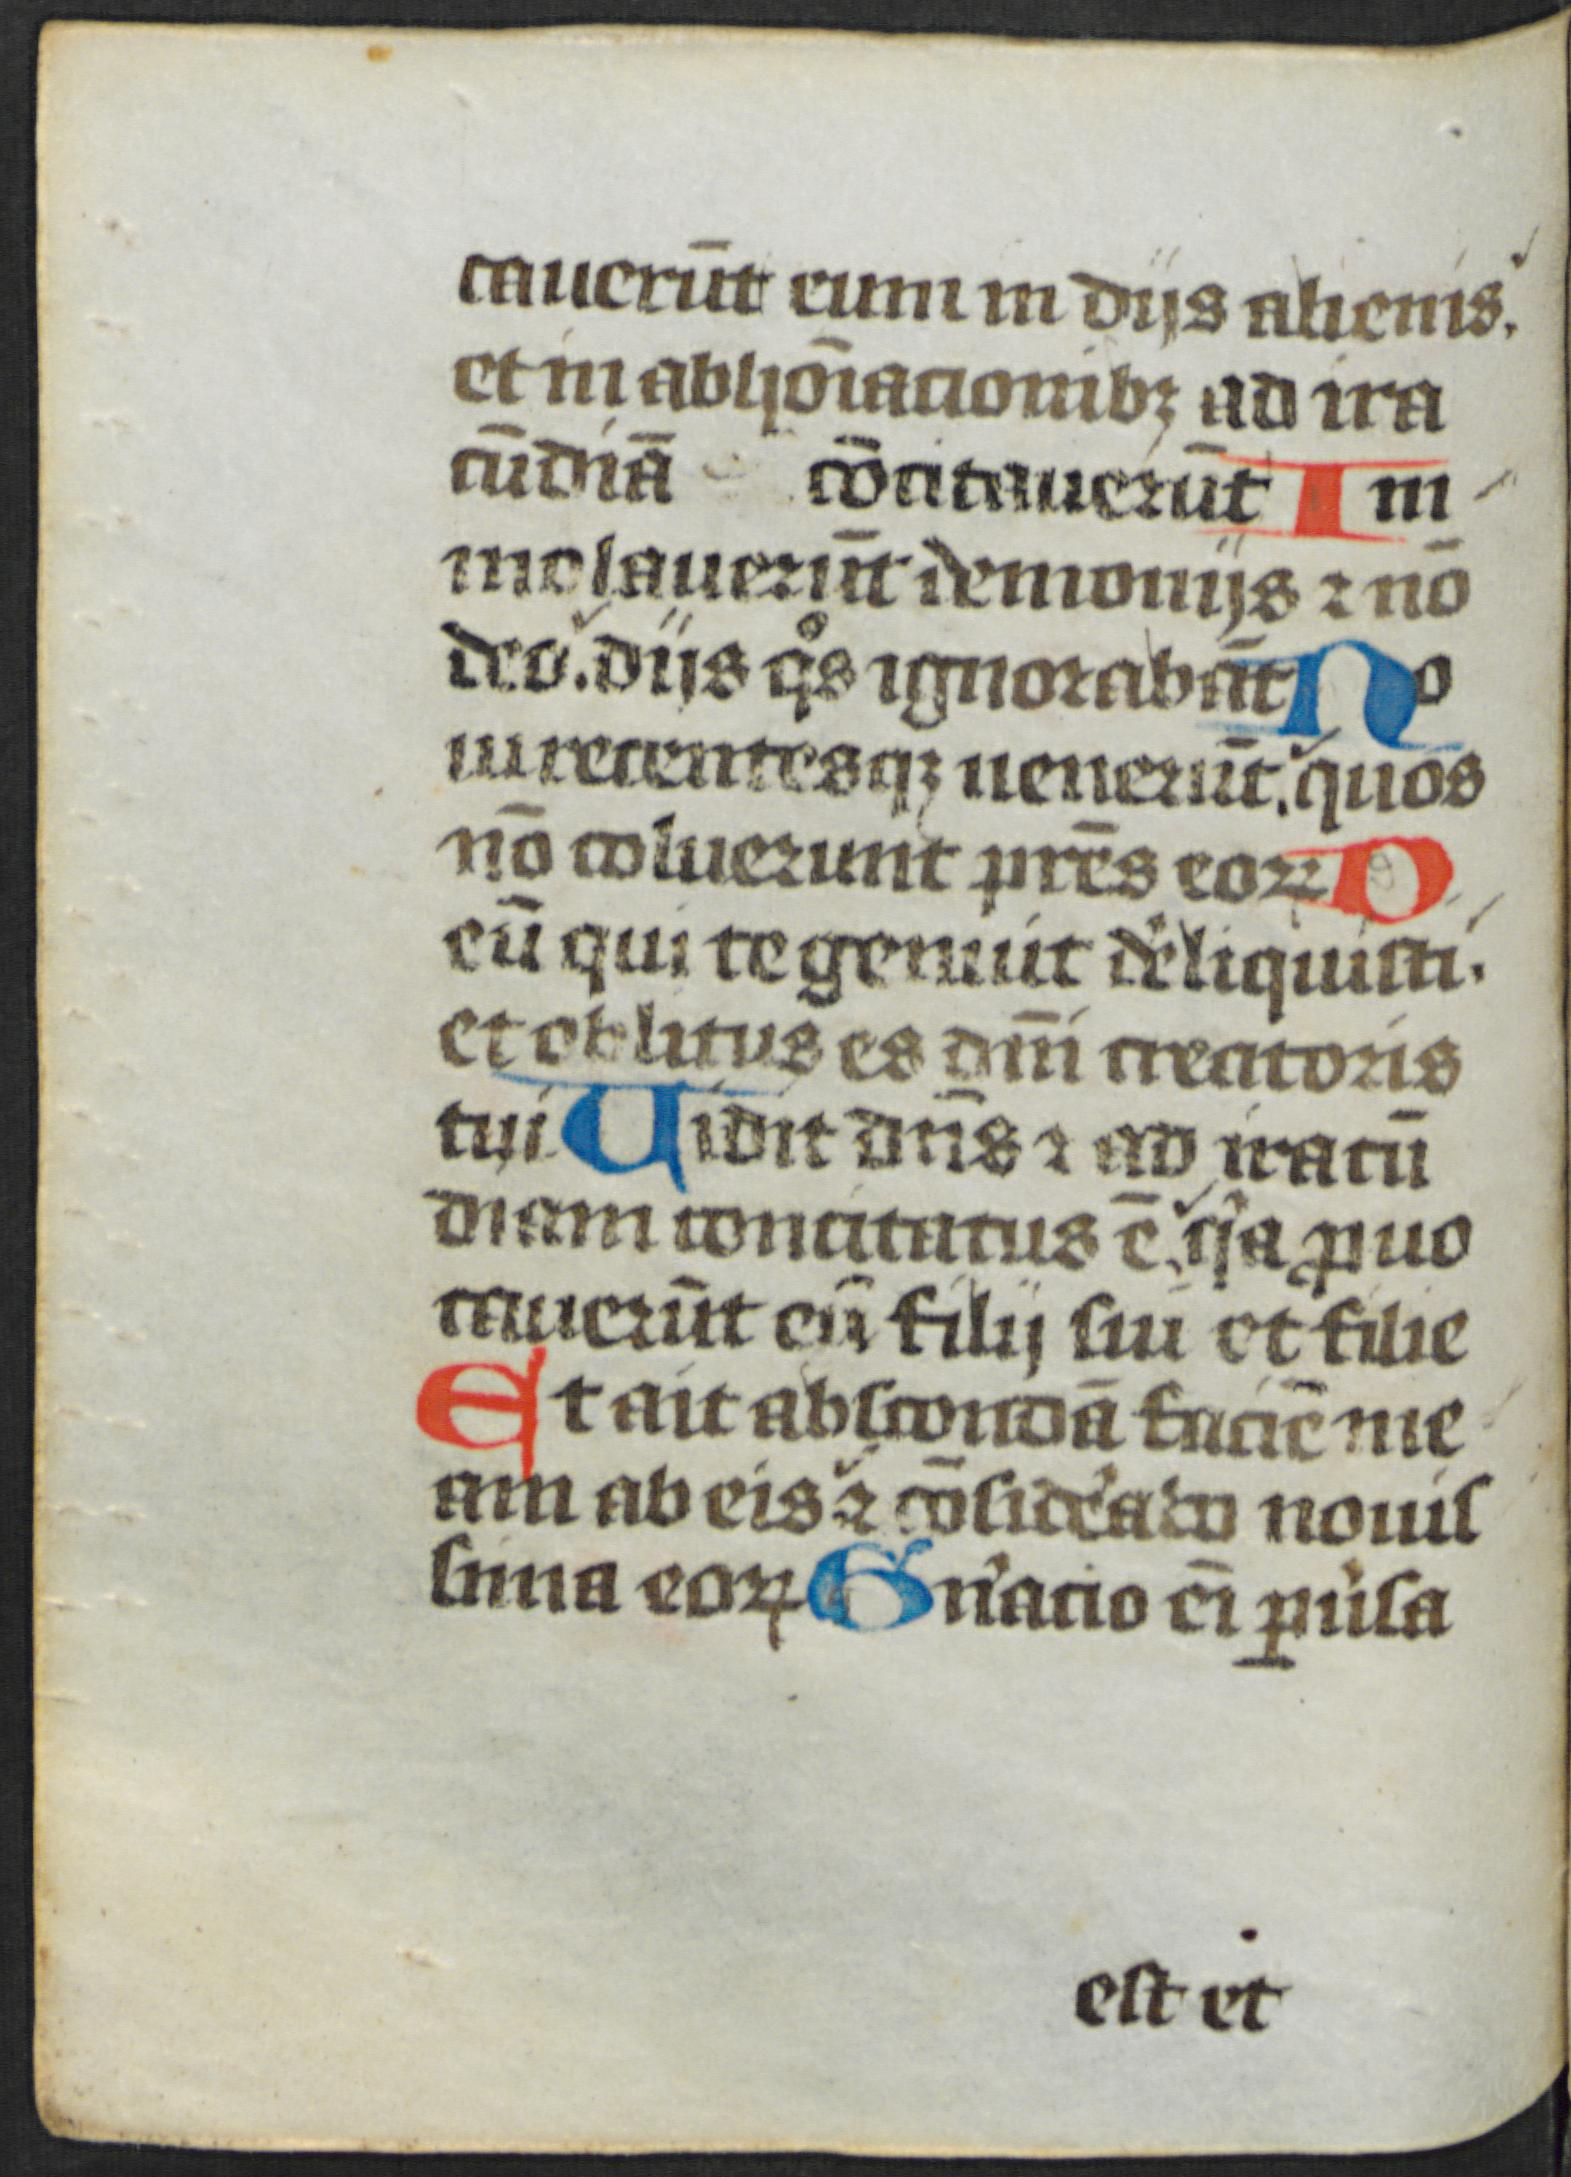 cauerūt eum in dijs alienis.
et in abhoīacionibꝫ ad ira
cūdiā cōcitauerūt Im
molauerūt demonijs ⁊ nō
deo. dijs qͦs ignorabāt No
ui recentesqꝫ uenerūt. quos
nō coluerunt pr̄es eoꝝ D
eū qui te genuit de͛liquisti.
et oblitus es dn̄i creatoris
tui Uidit dn̄s ⁊ ad iracū
diam concitatus ē. qͥa ꝓuo
cauerūt eū filij sui et filie
Et ait abscondā faciē me
am ab eis ⁊ cōside͛abo nouis
sima eoꝝ Gn͛acio ei̅ ꝑu͛sa
est et